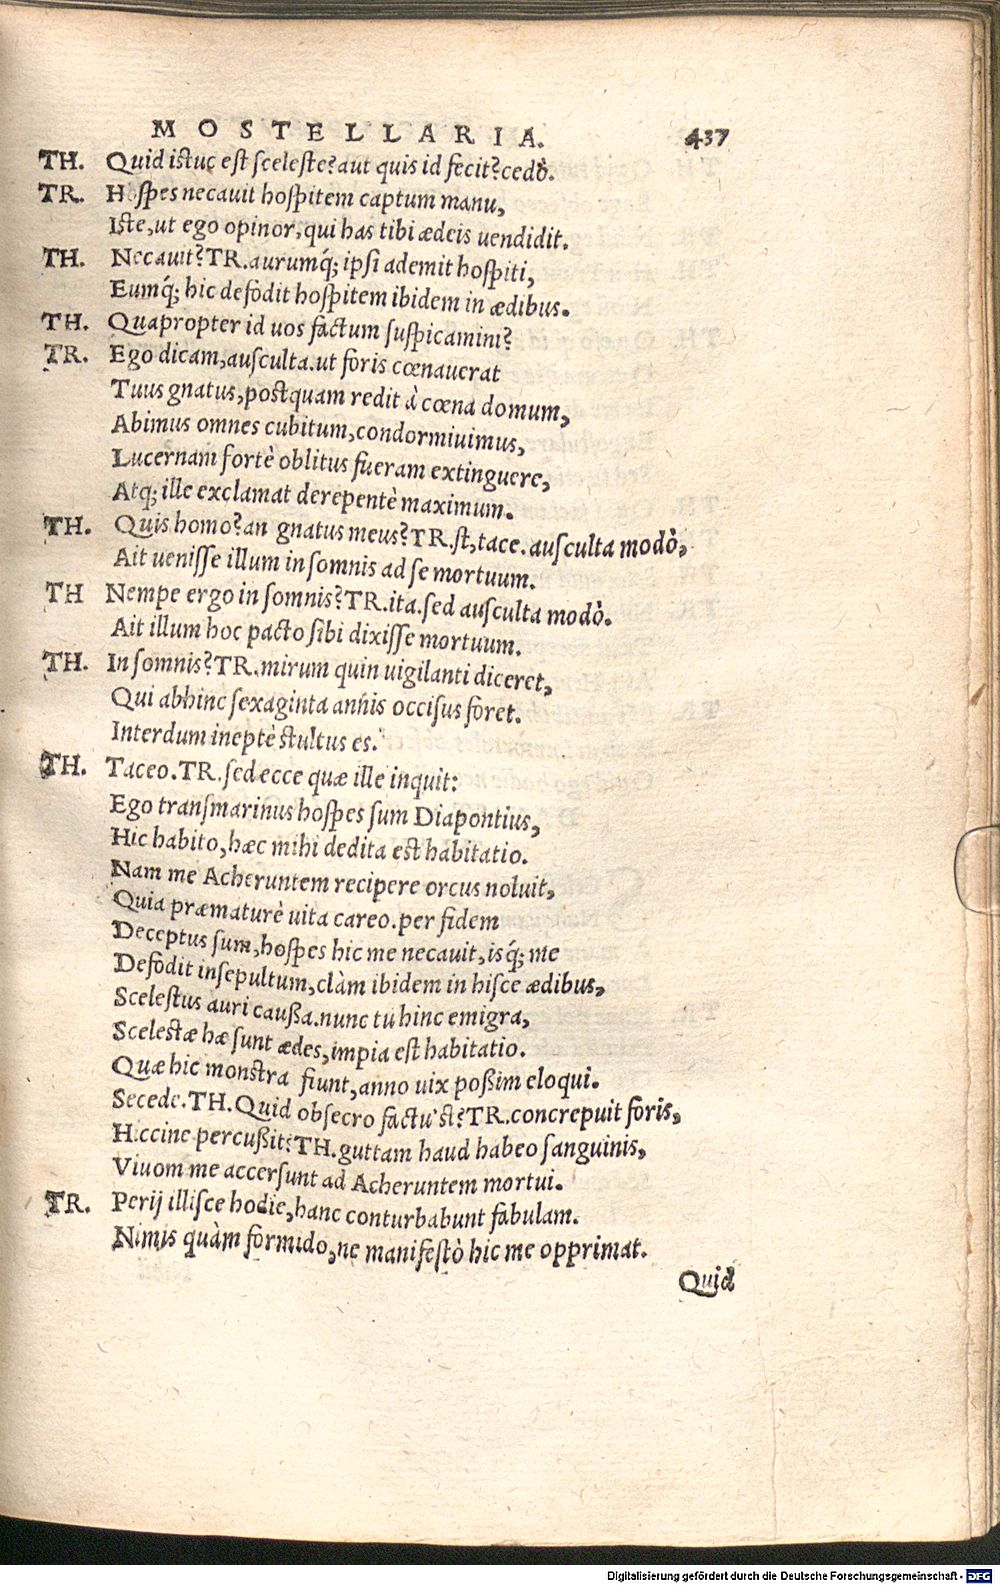 MOSTELLARIA. 437
TH. Quid istuc est sceleste? aut quis id fecit? cedò.
TR. Hospes necauit hospitem captum manu,
Iste, ut ego opinor, qui has tibi ædeis uendidit.
TH. Necauit? TR. aurumq́; ipsi ademit hospiti,
Eumq́; hic defodit hospitem ibidem in ædibus.
TH. Quapropter id uos factum suspicamini?
TR. Ego dicam, ausculta. ut foris cœnauerat
Tuus gnatus, postquam redit à cœna domum,
Abimus omnes cubitum, condormiuimus,
Lucernam fortè oblitus fueram extinguere,
Atq; ille exclamat derepentè maximum.
TH. Quis homo? an gnatus meus? TR. st, tace. ausculta modò,
Ait uenisse illum in somnis ad se mortuum.
TH Nempe ergo in somnis? TR. ita. sed ausculta modò.
Ait illum hoc pacto sibi dixisse mortuum.
TH. In somnis? TR. mirum quin uigilanti diceret,
Qui abhinc sexaginta annis occisus foret.
Interdum ineptè stultus es.
TH. Taceo. TR. sed ecce quæ ille inquit:
Ego transmarinus hospes sum Diapontius,
Hic habito, hæc mihi dedita est habitatio.
Nam me Acheruntem recipere orcus noluit,
Quia præmaturè uita careo. per fidem
Deceptus sum, hospes hic me necauit, isq́; me
Defodit insepultum, clàm ibidem in hisce ædibus,
Scelestus auri caußa. nunc tu hinc emigra,
Scelestæ hæ sunt ædes, impia est habitatio.
Quæ hic monstra fiunt, anno uix poßim eloqui.
Secede. TH. Quid obsecro factu'st? TR. concrepuit foris,
Hiccine percußit? TH. guttam haud habeo sanguinis,
Viuom me accersunt ad Acheruntem mortui.
TR. Perij illisce hodie, hanc conturbabunt fabulam.
Nimis quàm formido, ne manifestò hic me opprimat.
Quid
Digitalisierung gefördert durch die Deutsche Forschungsgemeinschaft - DFG